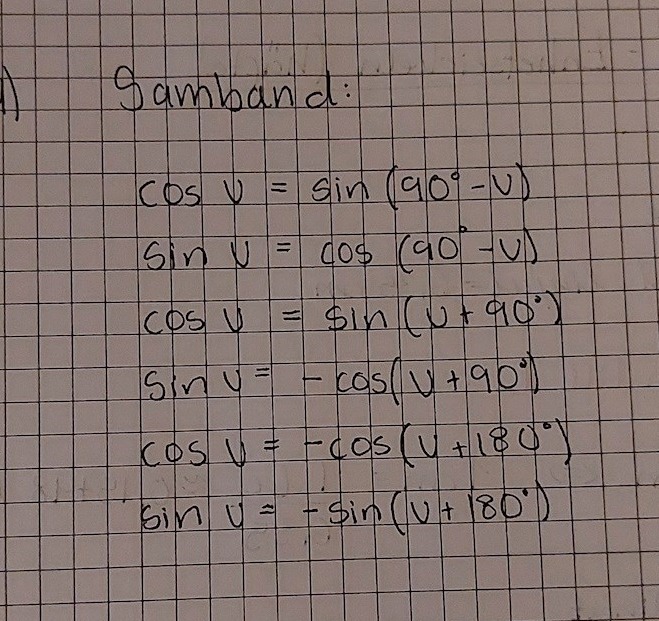 ) Samband:
cos v = sin (90° - v)
sin v = cos (90° - v)
cos v = sin (v + 90°)
sin v = - cos(v + 90°)
cos v = - cos (v + 180°)
sin v = - sin (v + 180°)